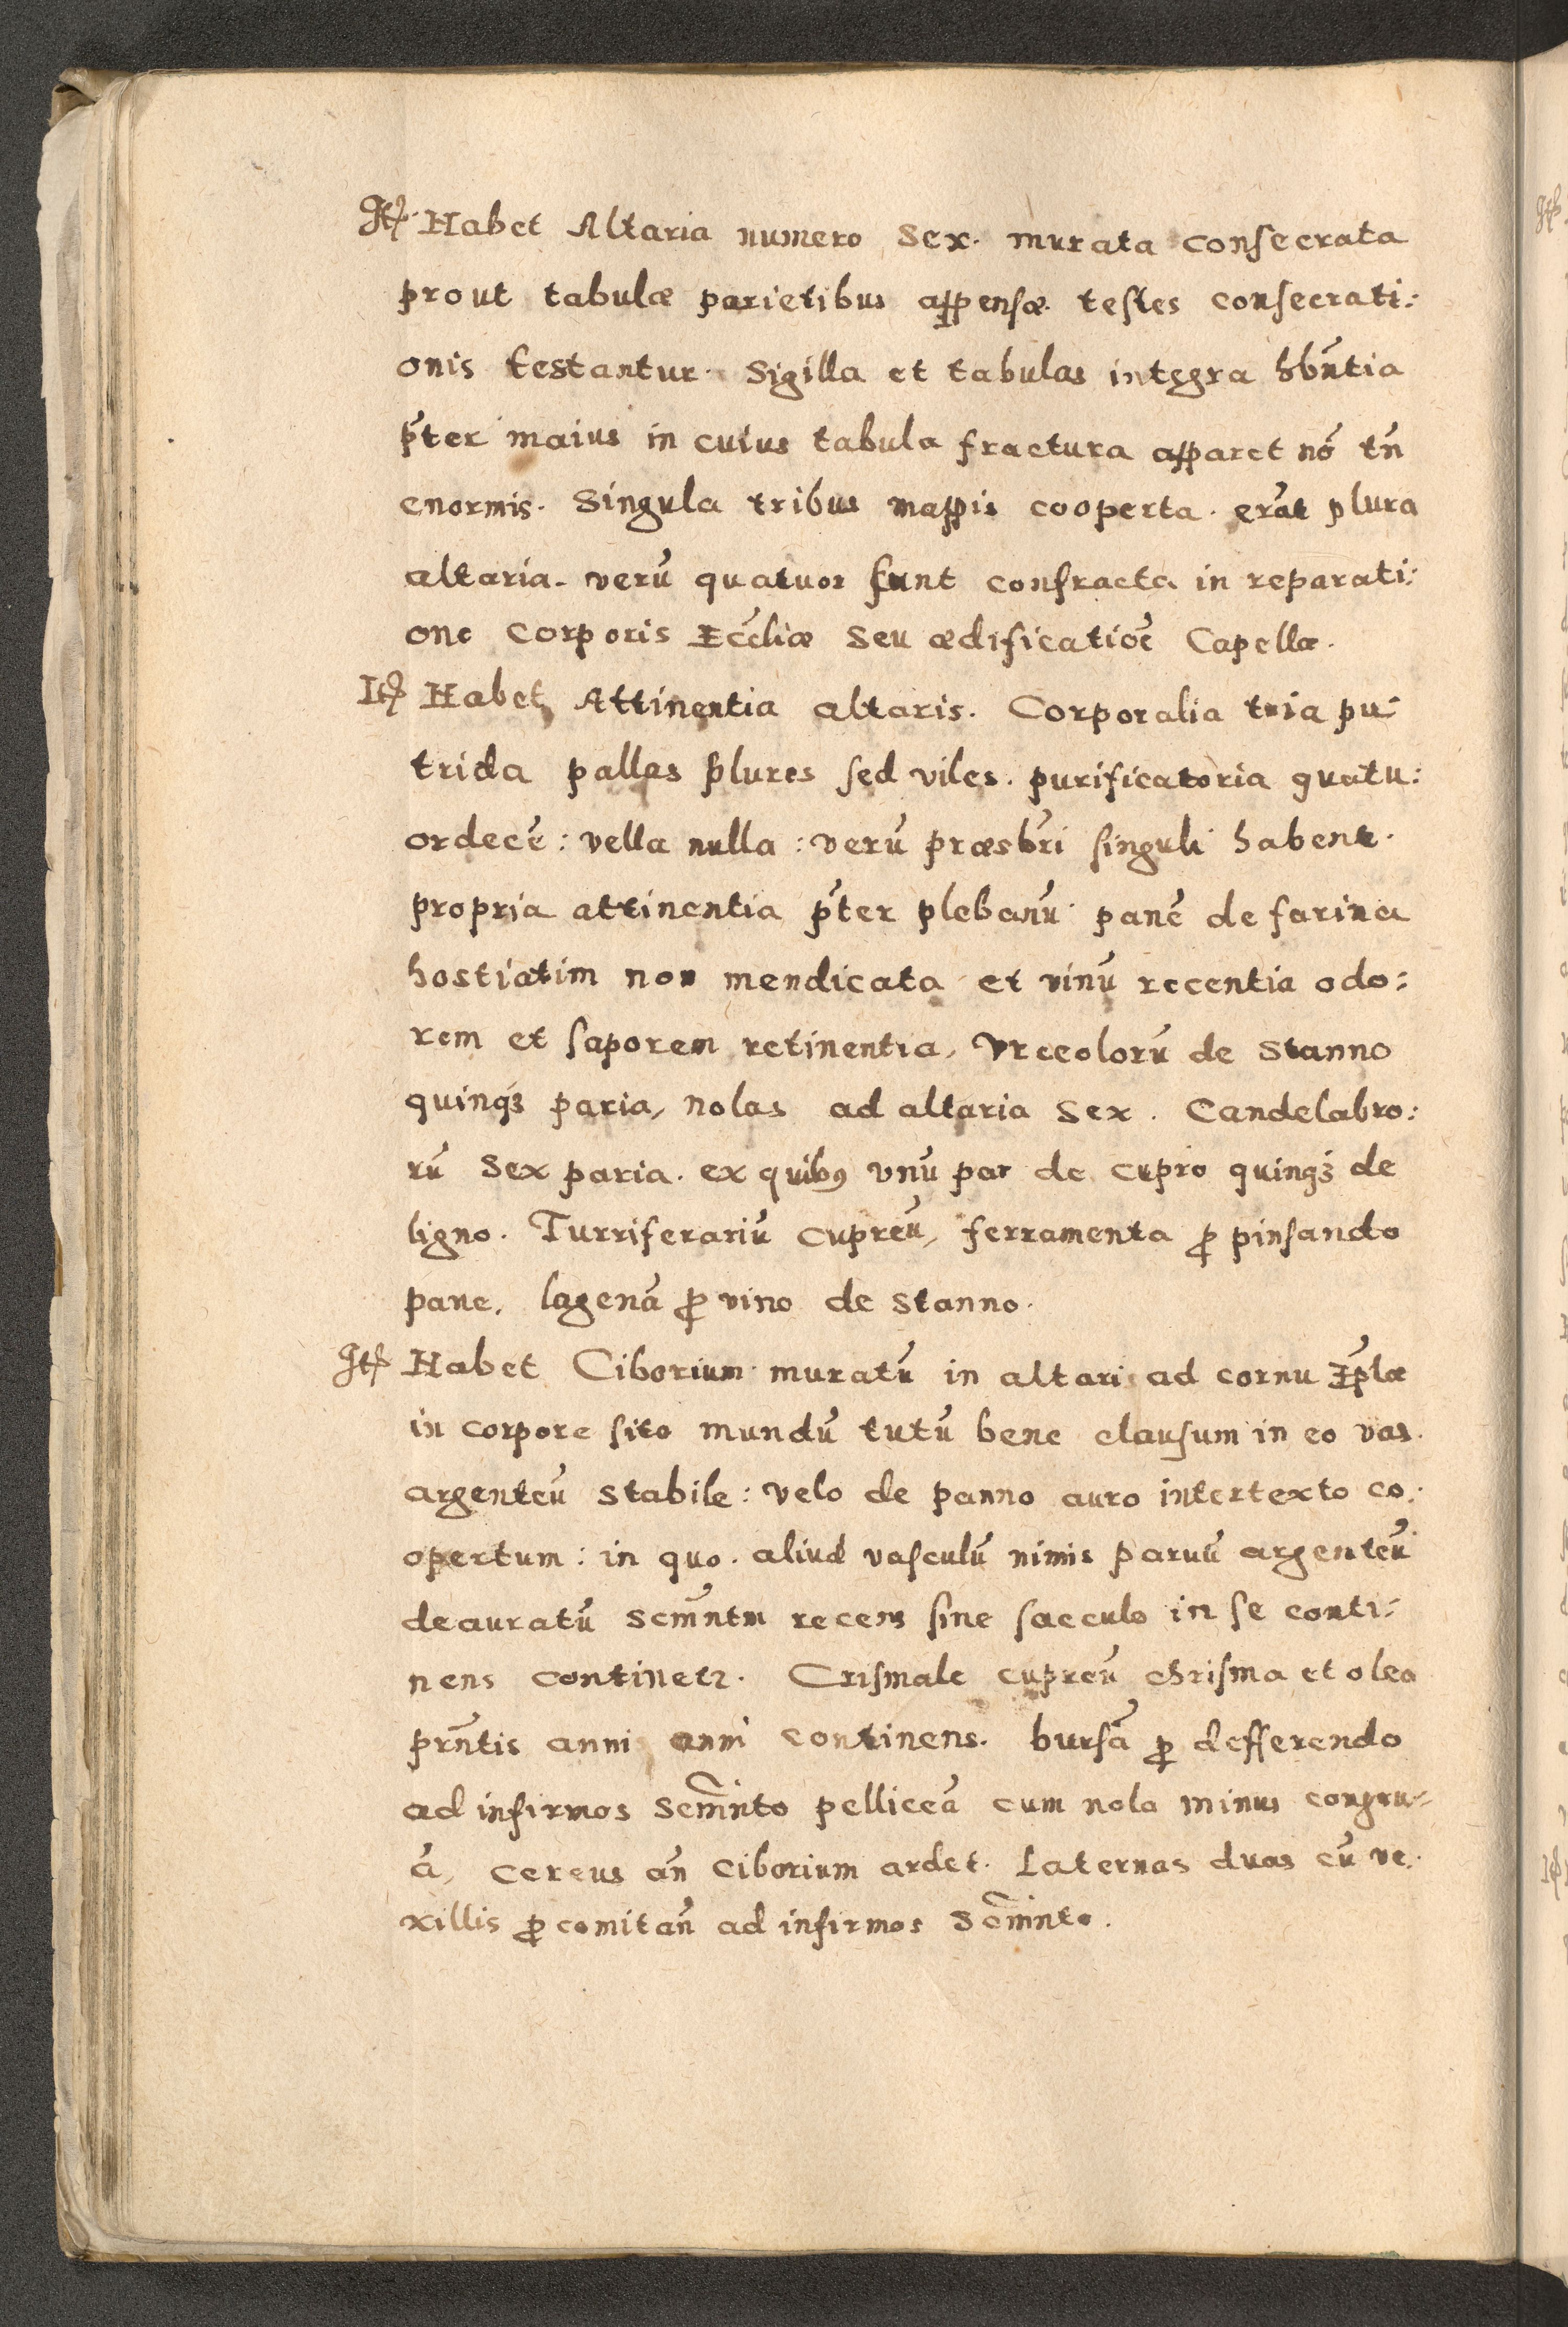 Itē Habet Altaria numero Sex. murata consecrata
prout tabulæ parietibus appensæ. testes consecrati:
onis testantur. Sigilla et tabulas integra hbn̄tia
p̄ter maius in cuius tabula fractura apparet nō tn̄
enormis. Singula tribus mappis cooperta. erāt plura
altaria. verū quatuor sunt confracta in reparati:
one corporis Eccłiæ seu ædificatiōe Capellæ.
Itē Habet Attinentia altaris. Corporalia tria pu:
trida pallas plures sed viles. purificatoria quatu:
ordecē: vella nulla: verū præsbr̄i singuli habent.
propria attinentia p̄ter plebanū panē de farina
hostiatim non mendicata et vinū recentia odo:
rem et saporem retinentia, Vrceolorū de Stanno
quinqȝ paria, nolas ad altaria Sex. Candelabro:
rū Sex paria. ex quibꝰ vnū par de cupro quinqȝ de
ligno. Turriferariū cupreū, ferramenta ꝓ pinsando
pane, lagenā ꝓ vino de Stanno.
Itē Habet Ciborium muratū in altari ad cornu Ep̄læ
in corpore sito mundū tutū bene clausum in eo vas.
argenteū stabile: velo de panno auro intertexto co:
opertum: in quo. aliud vasculū nimis paruū argenteū
deauratū Scm̄ntm recens sine sacculo in se conti:
nens continetꝛ. Crismale cupreū chrisma et olea
prn̄tis anni anni continens. bursā ꝓ defferendo
ad infirmos Scm̄nto pelliceā cum nola minus congru:
ā, cereus an̄ Ciborium ardet. Laternas duas cū ve:
xillis ꝓ comitan̄ ad infirmos Scm̄nto.